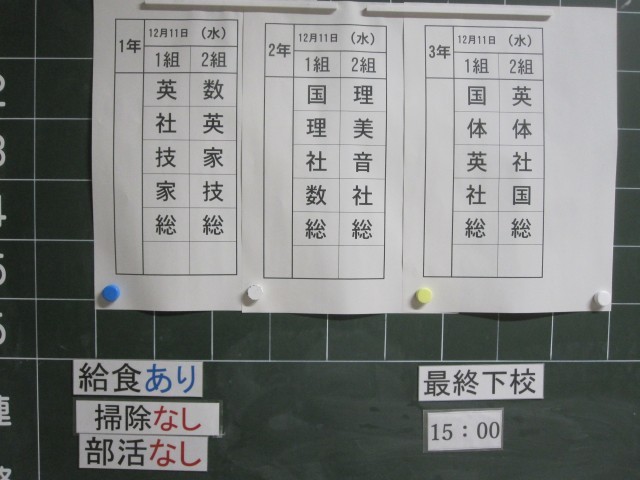 1年 12月11日 (水)
1組 2組
英 数
社 英
技 家
家 技
総 総
2年 12月11日 (水)
1組 2組
国 理
理 美
社 音
数 社
総 総
3年 12月11日 (水)
1組 2組
国 英
体 体
英 社
社 国
総 総
2
3
4
5
給食あり
掃除なし
部活なし
最終下校
15：00